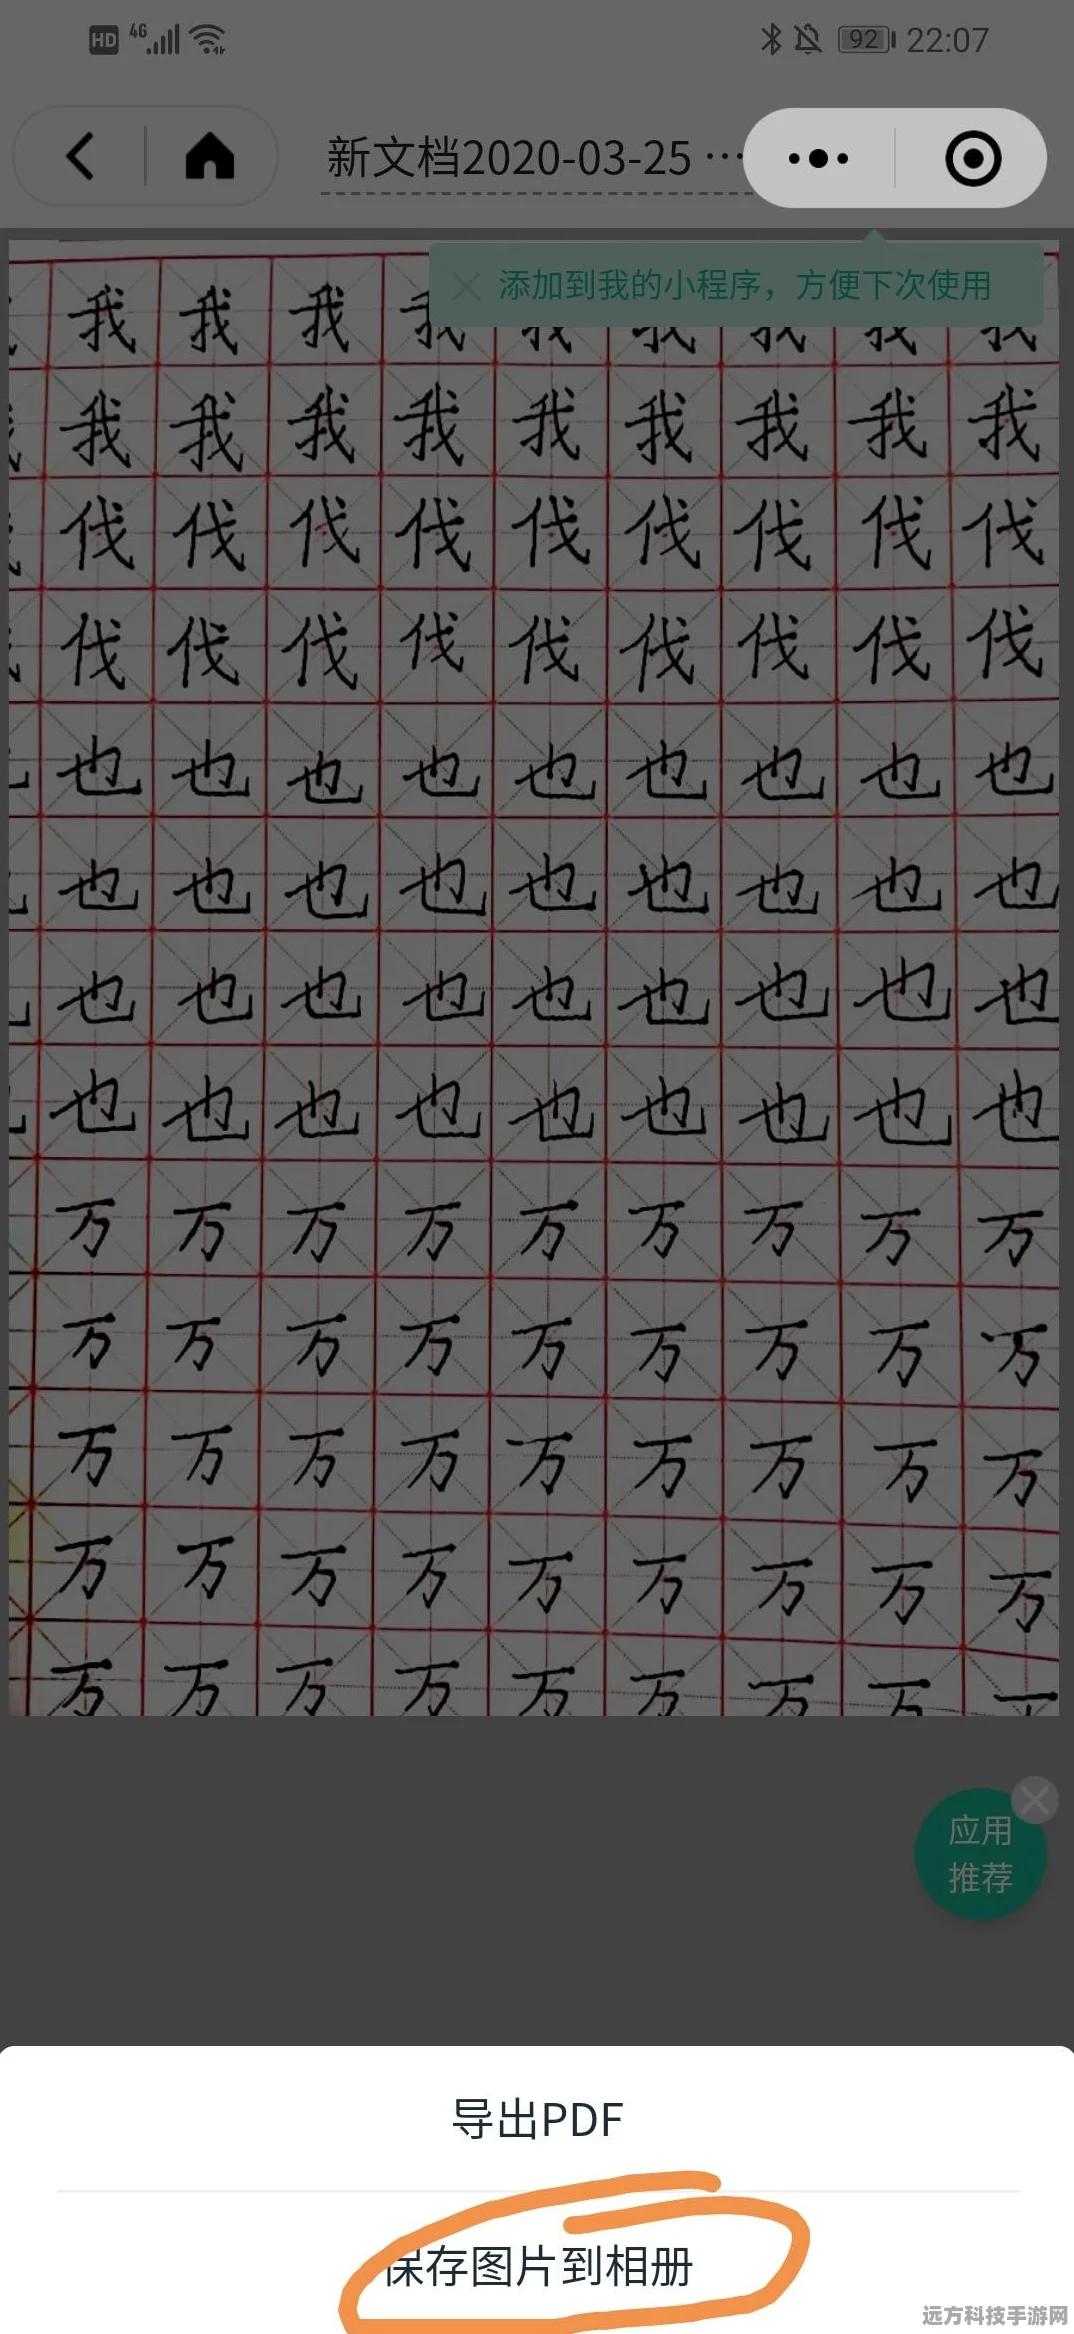 HD 4G 92 22:07
新文档2020-03-25 ···
添加到我的小程序，方便下次使用
我 我 我 我 我 我 我 我 我
我 我 我 我 我 我 我 我 我
伐 伐 伐 伐 伐 伐 伐 伐 伐
伐 伐 伐 伐 伐 伐 伐 伐 伐
也 也 也 也 也 也 也 也 也
也 也 也 也 也 也 也 也 也
也 也 也 也 也 也 也 也 也
也 也 也 也 也 也 也 也 也
万 万 万 万 万 万 万 万 万
万 万 万 万 万 万 万 万 万
万 万 万 万 万 万 万 万 万
万 万 万 万 万 万 万 万 万
万 万 万 万 万 万 万 万
应用
推荐
导出PDF
保存图片到相册
远方科技手游网